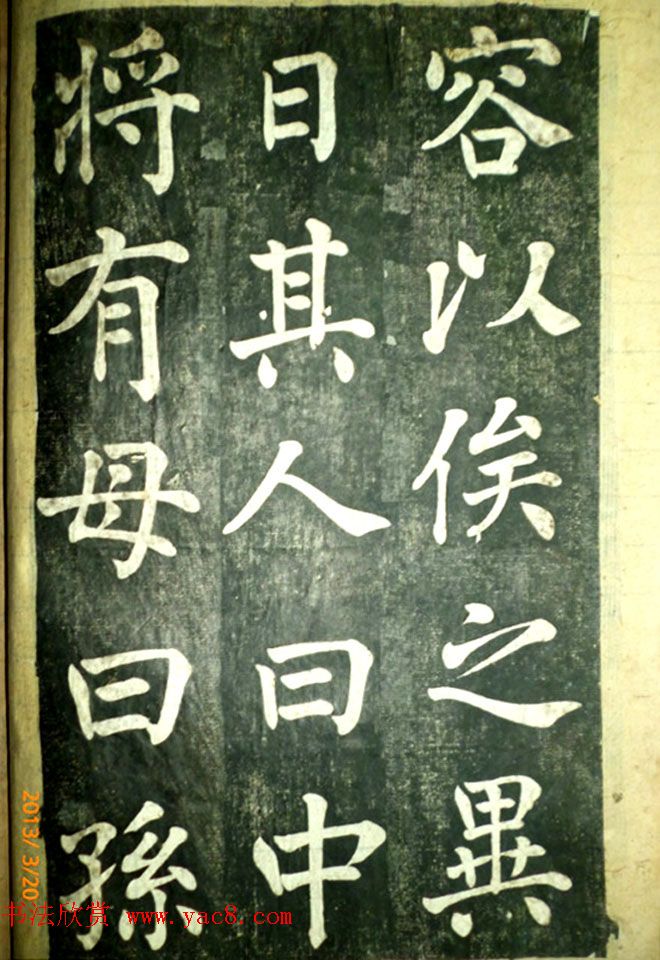 容以俟之畢
日其人曰中
将有母曰孫
2013/3/20
书法欣赏 www.yac8.com